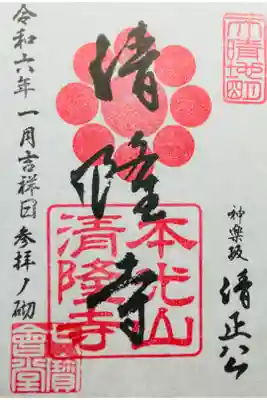 神楽坂 清正公
清隆寺
本比山
清隆寺
令和六年一月吉祥日参拝ノ砌